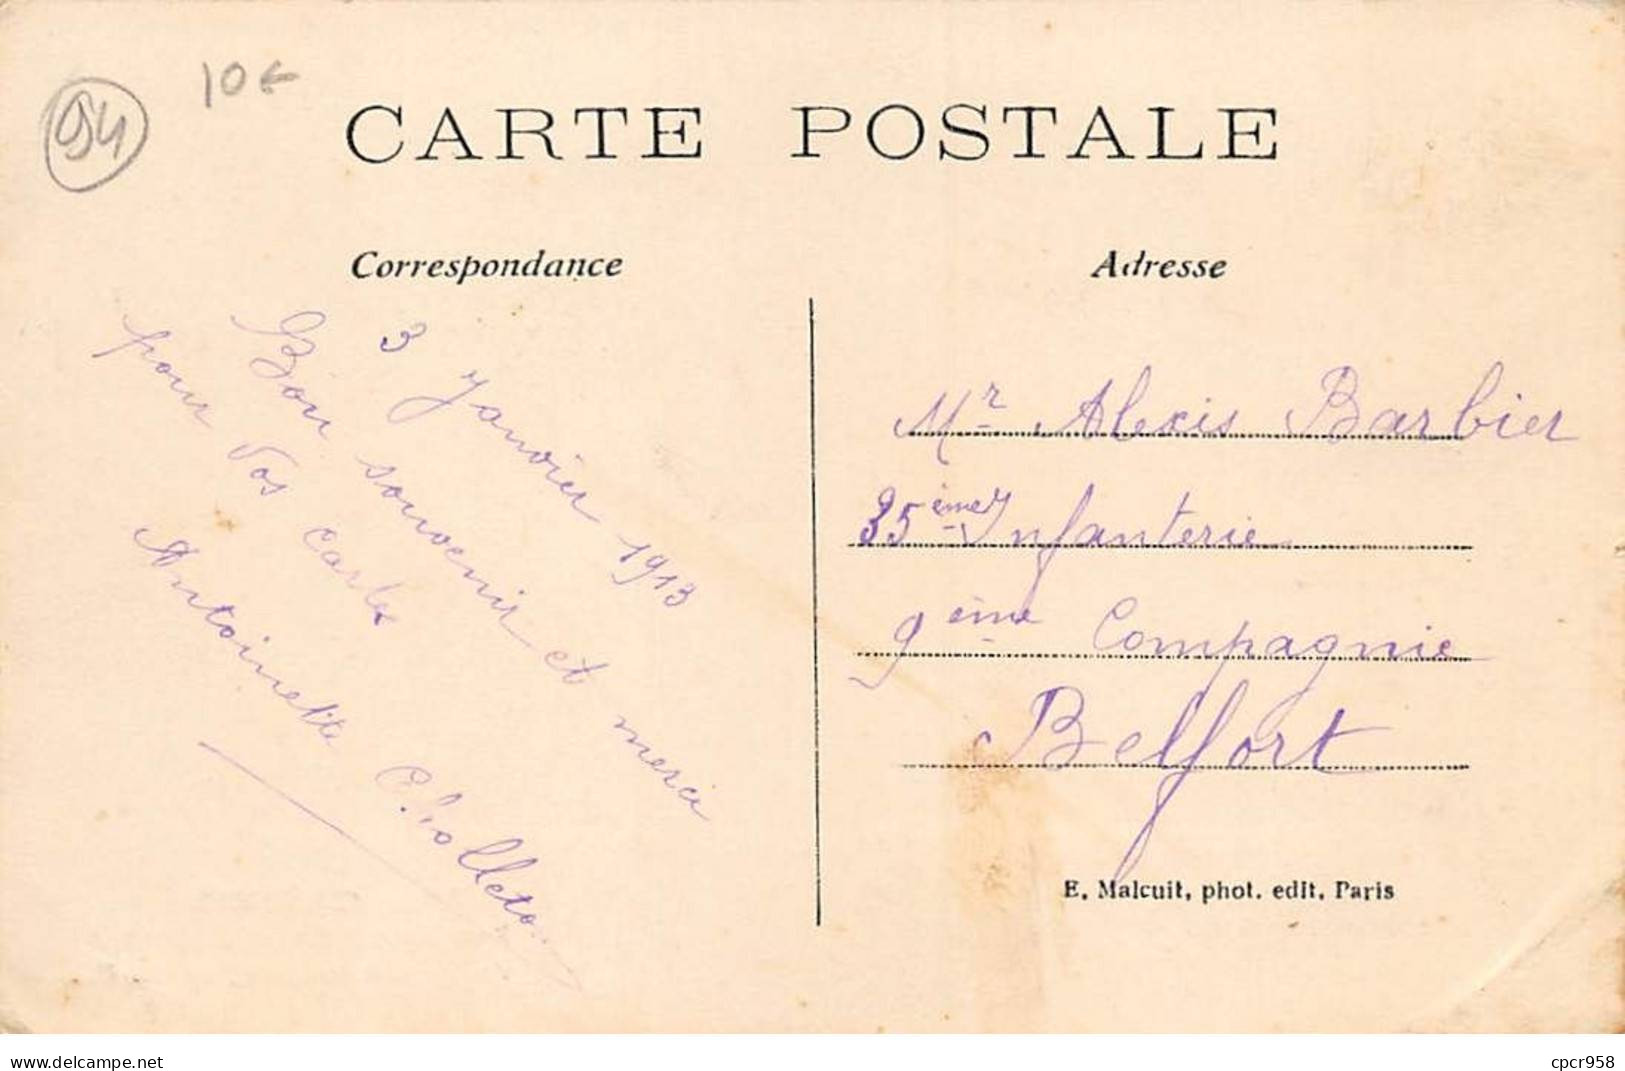 94
10€
CARTE POSTALE
Correspondance
Adresse
3 Janvier 1913
Bon souvenir et merci
pour vos cartes
Antoinette
Mr Alexis Barbier
35ème Infanterie
9ème Compagnie
Belfort
E. Malcuit, phot. edit. Paris
www.delcampe.net
cpcr958